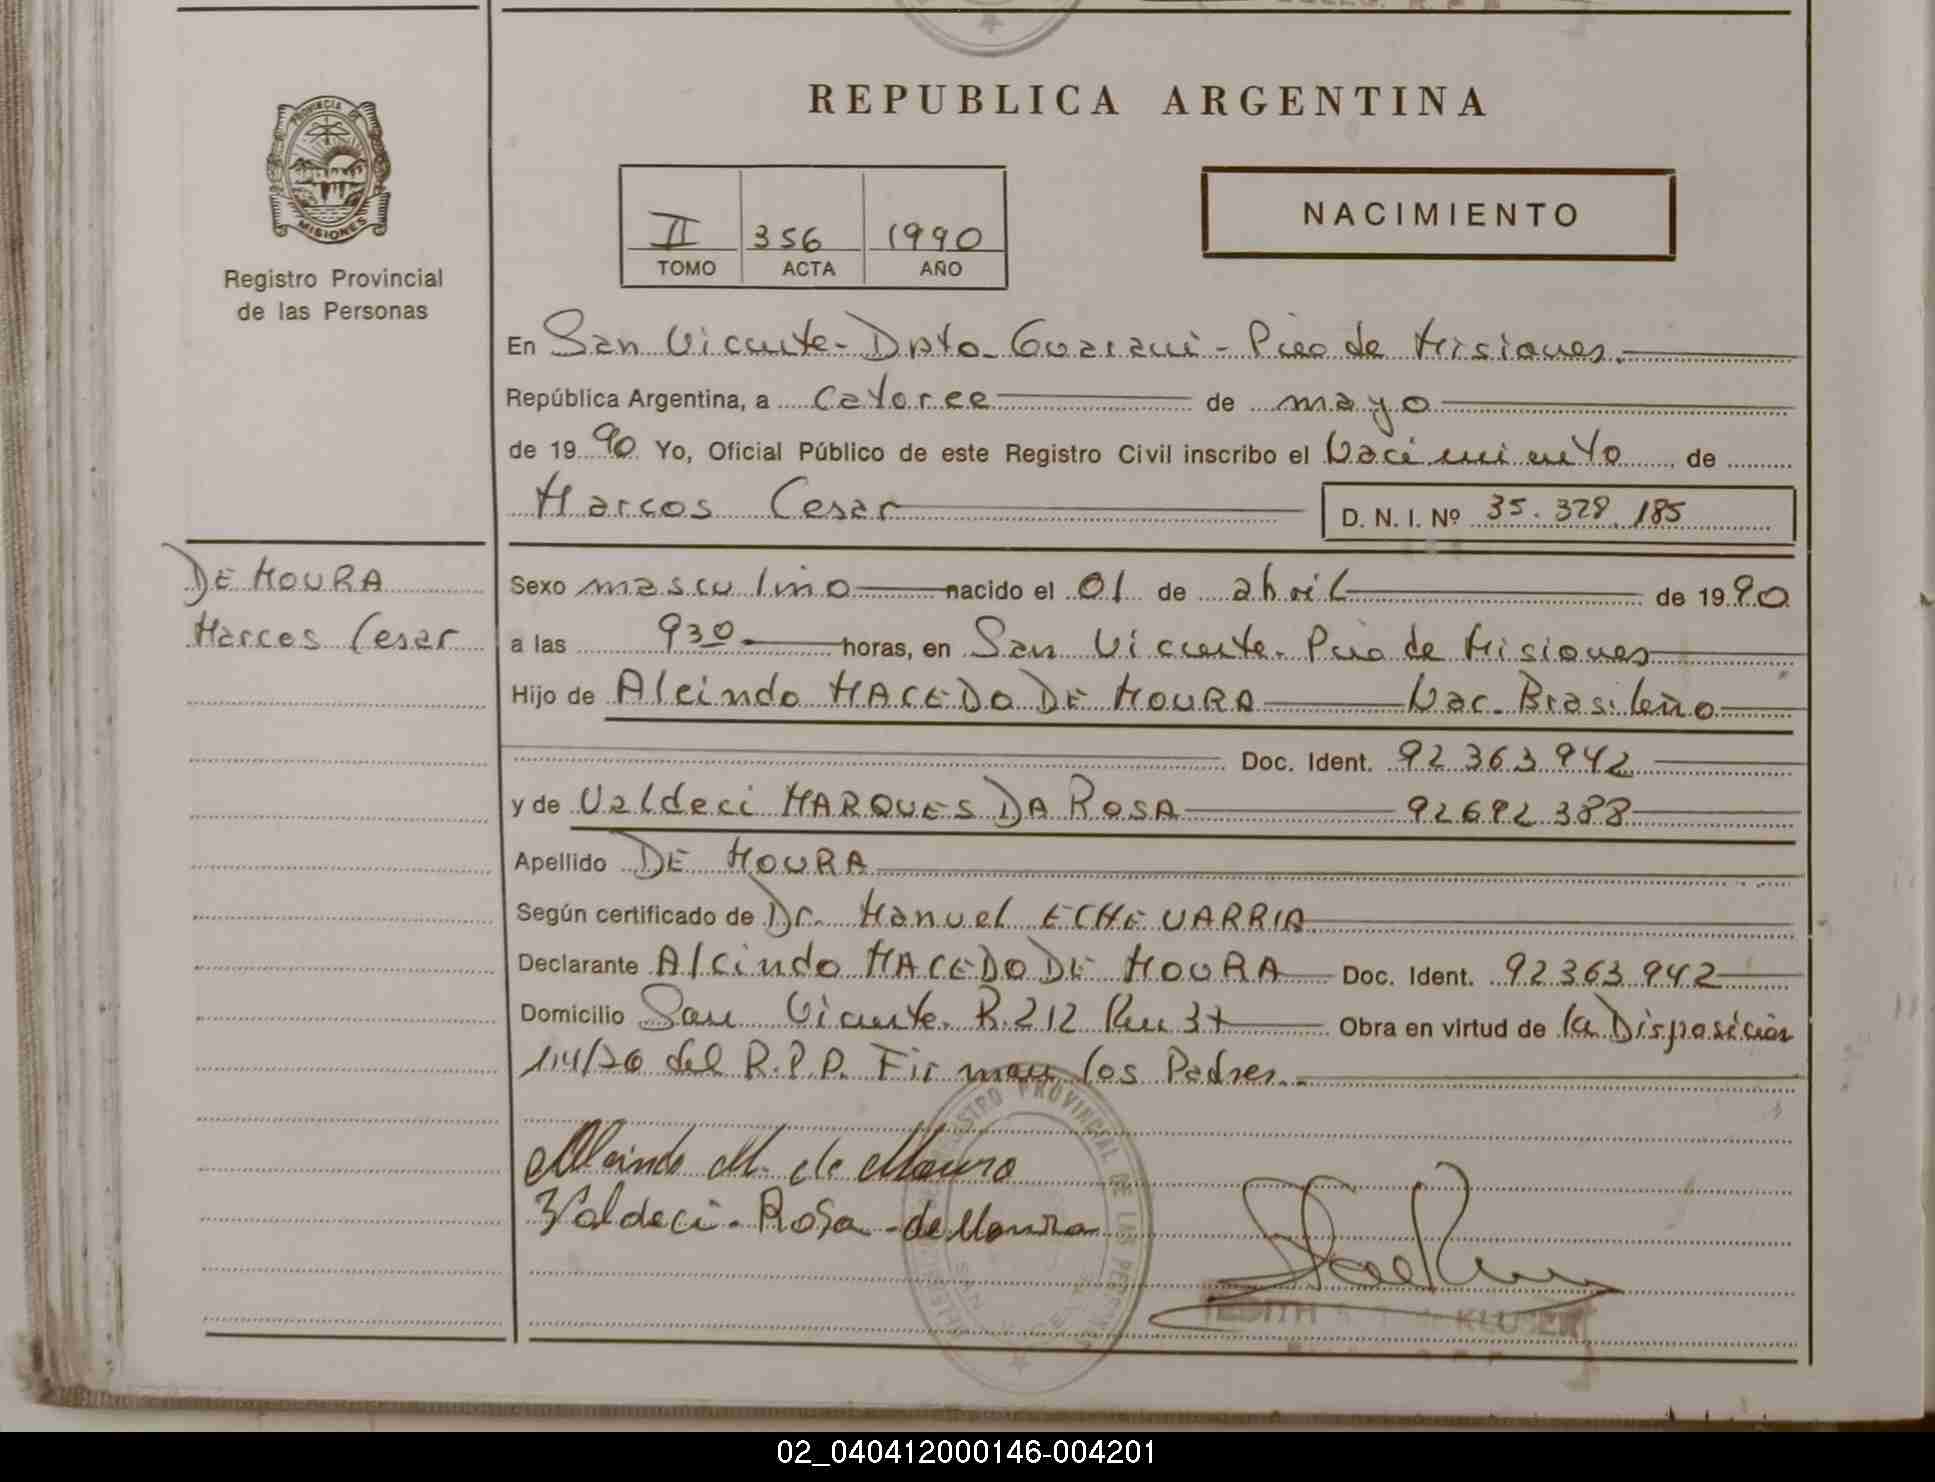 REPUBLICA ARGENTINA
PROVINCIA DE
MISIONES
Registro Provincial
de las Personas
II 356 1990
TOMO ACTA AÑO
NACIMIENTO
En San Vicente - Dpto. Guaraní - Pcia de Misiones.
República Argentina, a catorce de mayo
de 1990 Yo, Oficial Público de este Registro Civil inscribo el Nacimiento de
Marcos Cesar D. N. I. Nº 35.328.185
DE MOURA
Marcos Cesar
Sexo masculino nacido el 01 de abril de 1990
a las 930 horas, en San Vicente. Pcia de Misiones
Hijo de Alcindo MACEDO DE MOURA Nac. Brasileño
Doc. Ident. 92 363 942
y de Valdeci MARQUES DA ROSA 92692 388
Apellido DE MOURA
Según certificado de Dr. Manuel ECHEVARRIA
Declarante Alcindo MACEDO DE MOURA Doc. Ident. 92 363 942
Domicilio San Vicente. R. 212 Km 37 Obra en virtud de la Disposición
114/76 del R.P.P. Firman los Padres.
REGISTRO PROVINCIAL DE LAS PERSONAS
Alcindo M. de Moura
Valdeci - Rosa - de Moura
SAN VICENTE
KLUSER
02_040412000146-004201